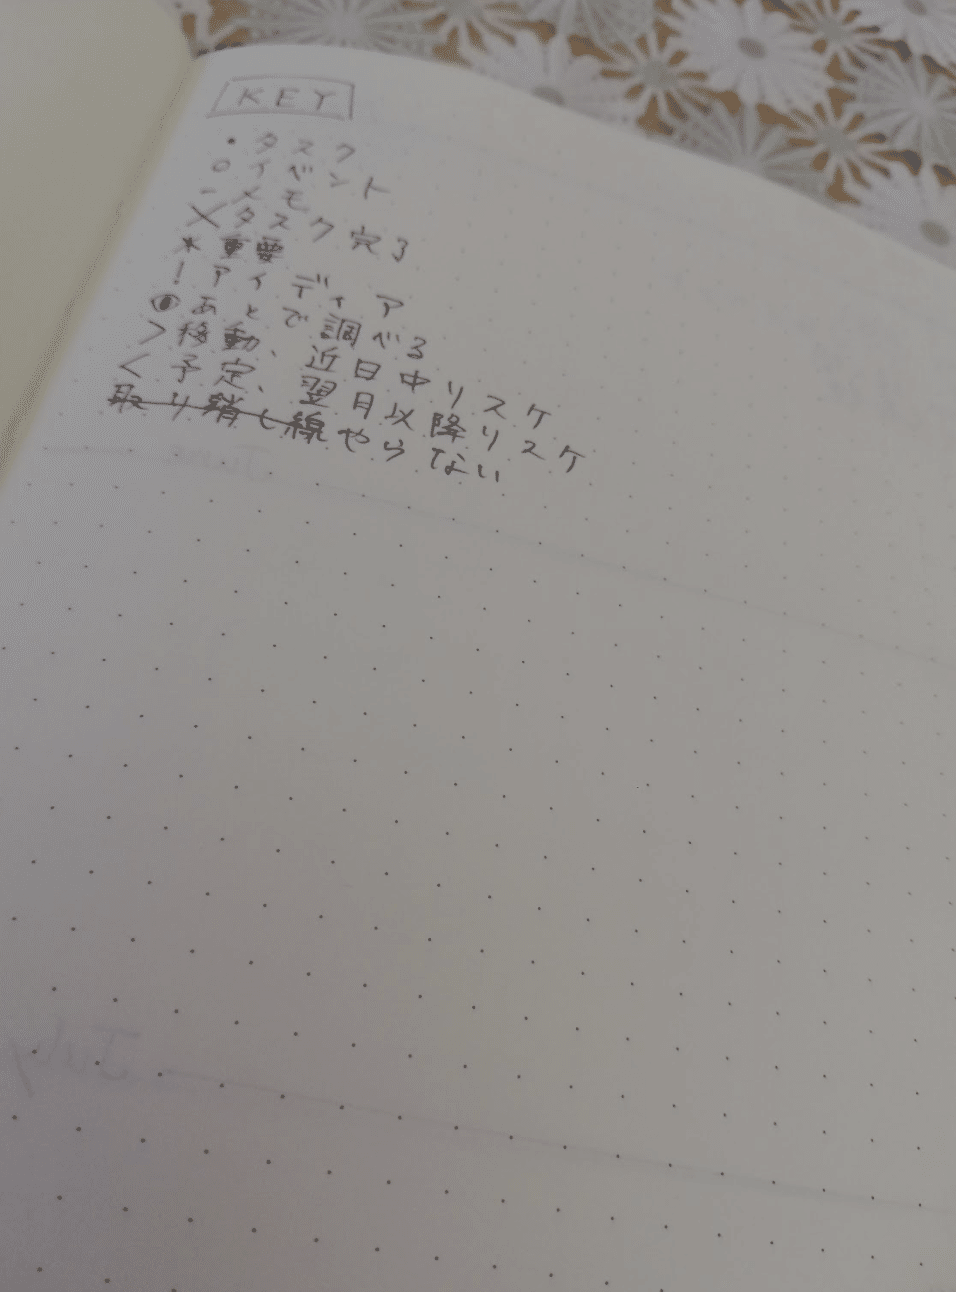 KEY
• タスク
○ イベント
- メモ
× タスク完了
* 重要
! アイディア
👁 あとで調べる
> 移動、近日中リスケ
< 予定、翌月以降リスケ
取り消し線やらない
June
July